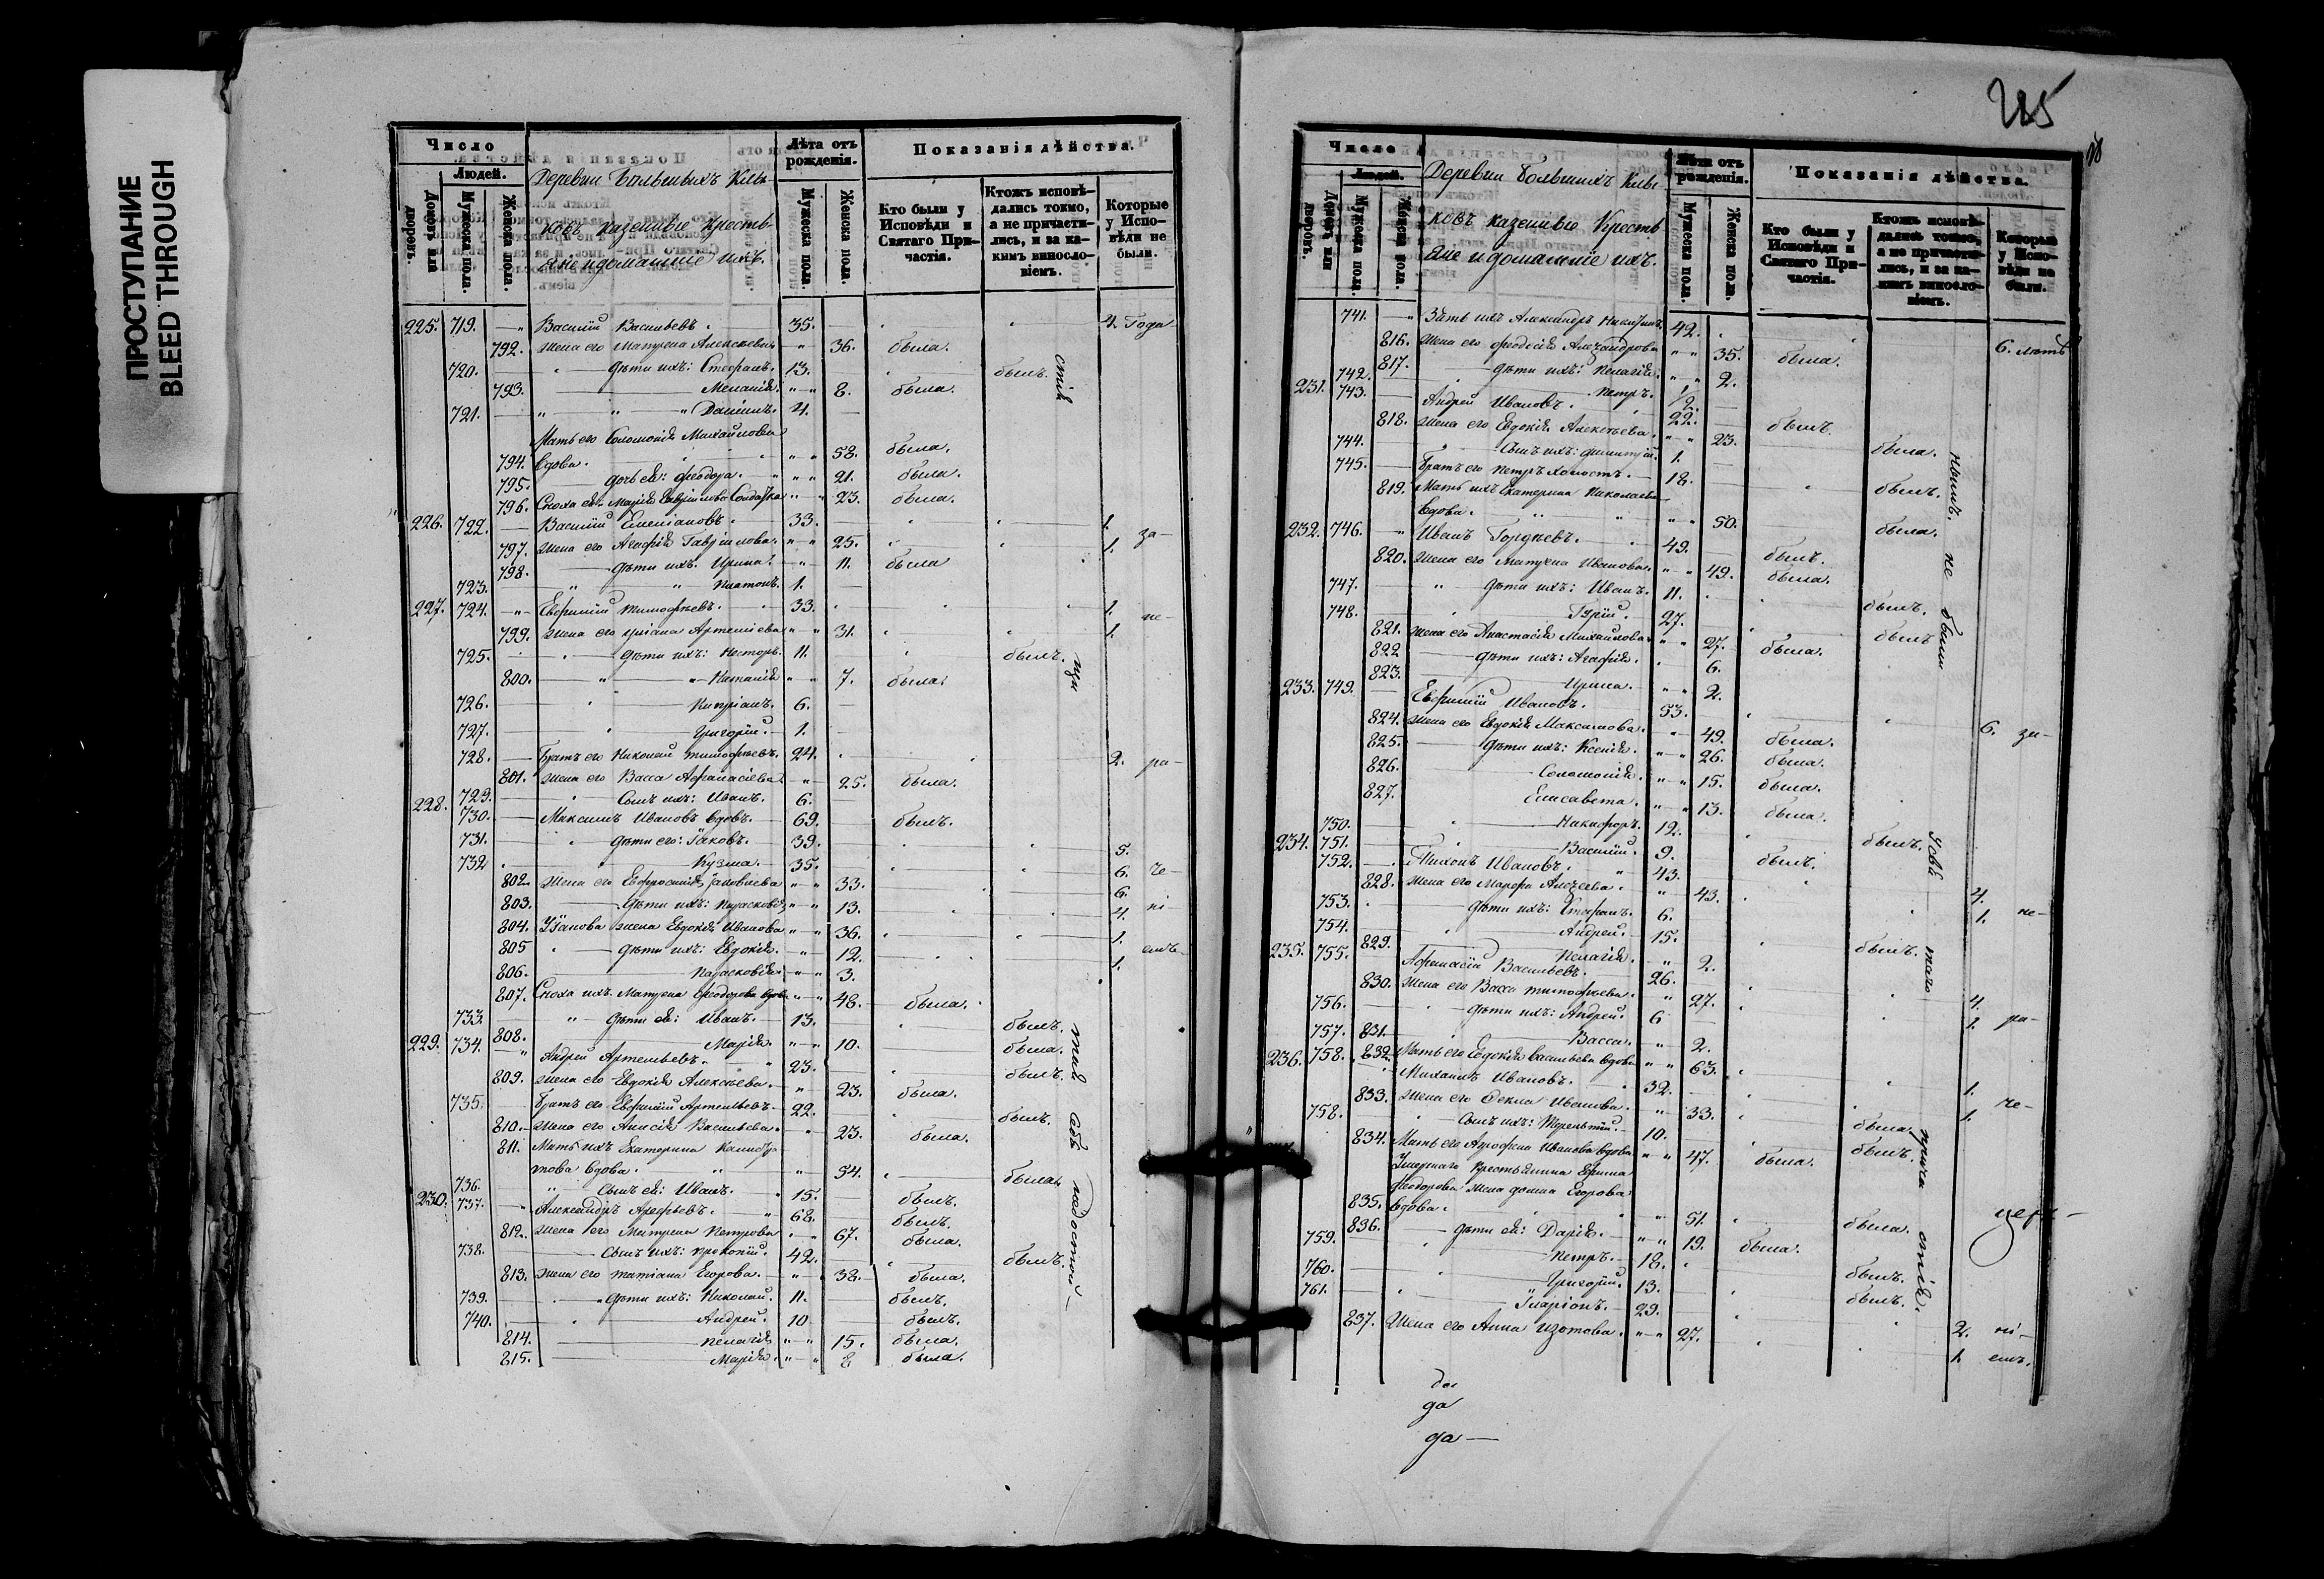 ПРОСТУПАНИЕ
BLEED THROUGH
Число
Людей.
Домовъ или дворовъ.
Мужеска пола.
Женска пола.
Деревни Большихъ
ковъ казенные Кресть-
яне и домашніе ихъ.
Лѣта отъ рожденія.
Мужеска пола.
Женска пола.
Показанія дѣйства.
Кто были у Исповѣди и Святаго При-частія.
Ктожъ исповѣ-дались токмо, а не причасти-лись, и за ка-кимъ виносло-віемъ.
Которые у Испо-вѣди не были.
225. 719. Василій Васильевъ. 35. 4. Года
792. жена его Матрена Алексѣева 36. была.
720. дѣти ихъ: Стефанъ. 13. былъ.
793. Меланія. 8. была.
721. Даніилъ. 4.
Мать его Соломонія Михайлова
794. вдова. 58. была.
795. дочь ея: Феодора. 21. была.
796. Сноха ея Марія Гаврилова Солдатка 23. была.
226. 722. Василій Емеліановъ 33. 1.
797. жена его Агафія Гаврилова. 25. 1. за-
798. дѣти ихъ. Ирина. 11. была
723. Платонъ. 1.
227. 724. Евфимій Тимофѣевъ. 33. 1.
799. жена его Артеміева 31. 1. не-
725. дѣти ихъ: Несторъ. 11. былъ.
800. Наталія 7. была.
726. Кипріанъ. 6.
727. Григорій. 1.
728. Братъ его Николай Тимофѣевъ. 24. 2. ра-
801. жена его Васса Афанасіева 25. была.
729. Сынъ ихъ: Иванъ. 6.
228. 730. Максимъ Ивановъ вдовъ. 69. былъ.
731. дѣти его: Іаковъ. 39. 5.
732 Кузма. 35. 6. че-
802. жена его Евфросинія Іаковлева 33. 6.
803. дѣти ихъ: Парасковія 13. 4. ні-
804. жена Евдокія Иванова 36. 1.
805 дѣти ихъ: Евдокія. 12. 1. емъ
806. Парасковія. 3.
807. Сноха ихъ Матрена Феодорова вдова 48. была.
733. дѣти ея: Иванъ. 13. былъ.
808. Марія. 10. была.
229. 734. Андрей Артемьевъ. 23. былъ.
809. жена его Евдокія Алексѣева. 23. была.
735. Братъ его Евфимій Артемьевъ 22. былъ.
810. жена его Анисія Васильева. 23. была.
811. Мать ихъ Екатерина
това вдова. 54. была.
736. Сынъ ея: Иванъ. 15. былъ.
230. 737. Александръ Арефьевъ. 68. былъ.
812. жена его Матрена Петрова 67. была.
738. Сынъ ихъ: Прокопій. 42. былъ.
813. жена его Татіана Егорова. 38. была.
739. дѣти ихъ: Николай. 11. былъ.
740. Андрей. 10 былъ.
814. Пелагія 15. была.
815. Марія. 8 была.
225
Число
Людей.
Домовъ или дворовъ.
Мужеска пола.
Женска пола.
Деревни Большихъ
ковъ казенные Кресть
яне и домашніе ихъ.
Лѣта отъ рожденія.
Мужеска пола.
Женска пола.
Показанія дѣйства.
Кто были у Исповѣди и Святаго При-частія.
Ктожъ исповѣ-дались токмо, а не причасти-лись, и за ка-кимъ винослo-віемъ.
Которые у Испо-вѣди не были.
741. Зять ихъ Александръ 42. 6. лѣтъ
816. жена его Феодосія Александрова 35. была.
817. дѣти ихъ: Пелагія. 2.
742. Петръ.
231. 743. Андрей Ивановъ. 22. былъ.
818. жена его Евдокія Алексѣева. 23. была.
744. Сынъ ихъ: Димитрій. 1.
745. Братъ его Петръ холостъ. 18. былъ.
819. Мать ихъ Екатерина Николаева
вдова. 50. была.
232. 746. Иванъ Гордѣевъ. 49. былъ.
820. жена его Матрена Иванова. 49. была.
747. дѣти ихъ: Иванъ. 11. былъ.
748. Гурій. 27. былъ
821. жена его Анастасія Михайлова 27. была.
822 дѣти ихъ: Агафія. 6.
823. Ирина. 2.
233. 749. Евфимій Ивановъ. 53. 6. за-
824. жена его Евдокія Максимова. 49. была.
825. дѣти ихъ: Ксенія. 26. была.
826. Соломонія. 15. была.
827. Елисавета. 13. была.
750. Никифоръ. 12. былъ.
751. Василій. 9. былъ.
234. 752. Тихонъ Ивановъ. 43. 4.
828. жена его Марфа 43. 1. не-
753. дѣти ихъ: Стефанъ. 6.
754. Андрей. 15. былъ.
829. Пелагія. 2.
235. 755. Афанасій Васильевъ. 26. 4.
830. жена его Васса Тимофѣева. 27. 1. ра-
756. дѣти ихъ: Андрей. 6
757. 831. Васса. 2.
832. Мать его Евдокія Васильева вдова 63.
236. 758. Михаилъ Ивановъ. 32. 1.
833. жена его Фекла Иванова. 33. 1. че-
758. Сынъ ихъ: 10. былъ.
834. Мать его Агрофена Иванова вдова 47. была.
Умершаго Крестьянина Ефима
Феодорова жена Домна Егорова
835. вдова. 51. была.
836. дѣти ея: Дарія. 19. была.
759. Петръ. 18. былъ.
760. Григорій. 13. былъ.
761. Иларіонъ. 29. 2. ні-
837. Жена его Анна Изотова. 27. 1. емъ.
да
да
да